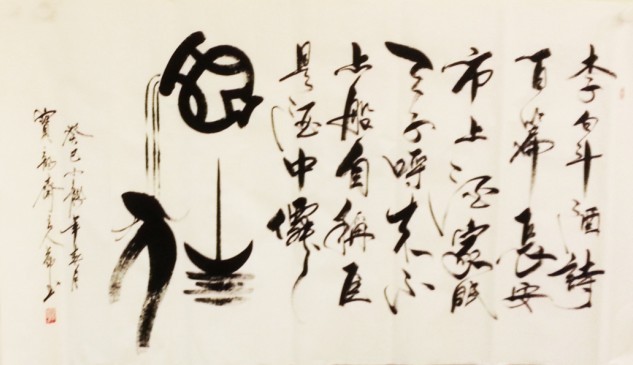 李白斗酒詩
百篇長安
市上酒家眠
天子呼来不
上船自稱臣
是酒中僊
癸巳小龍年月
齋主人